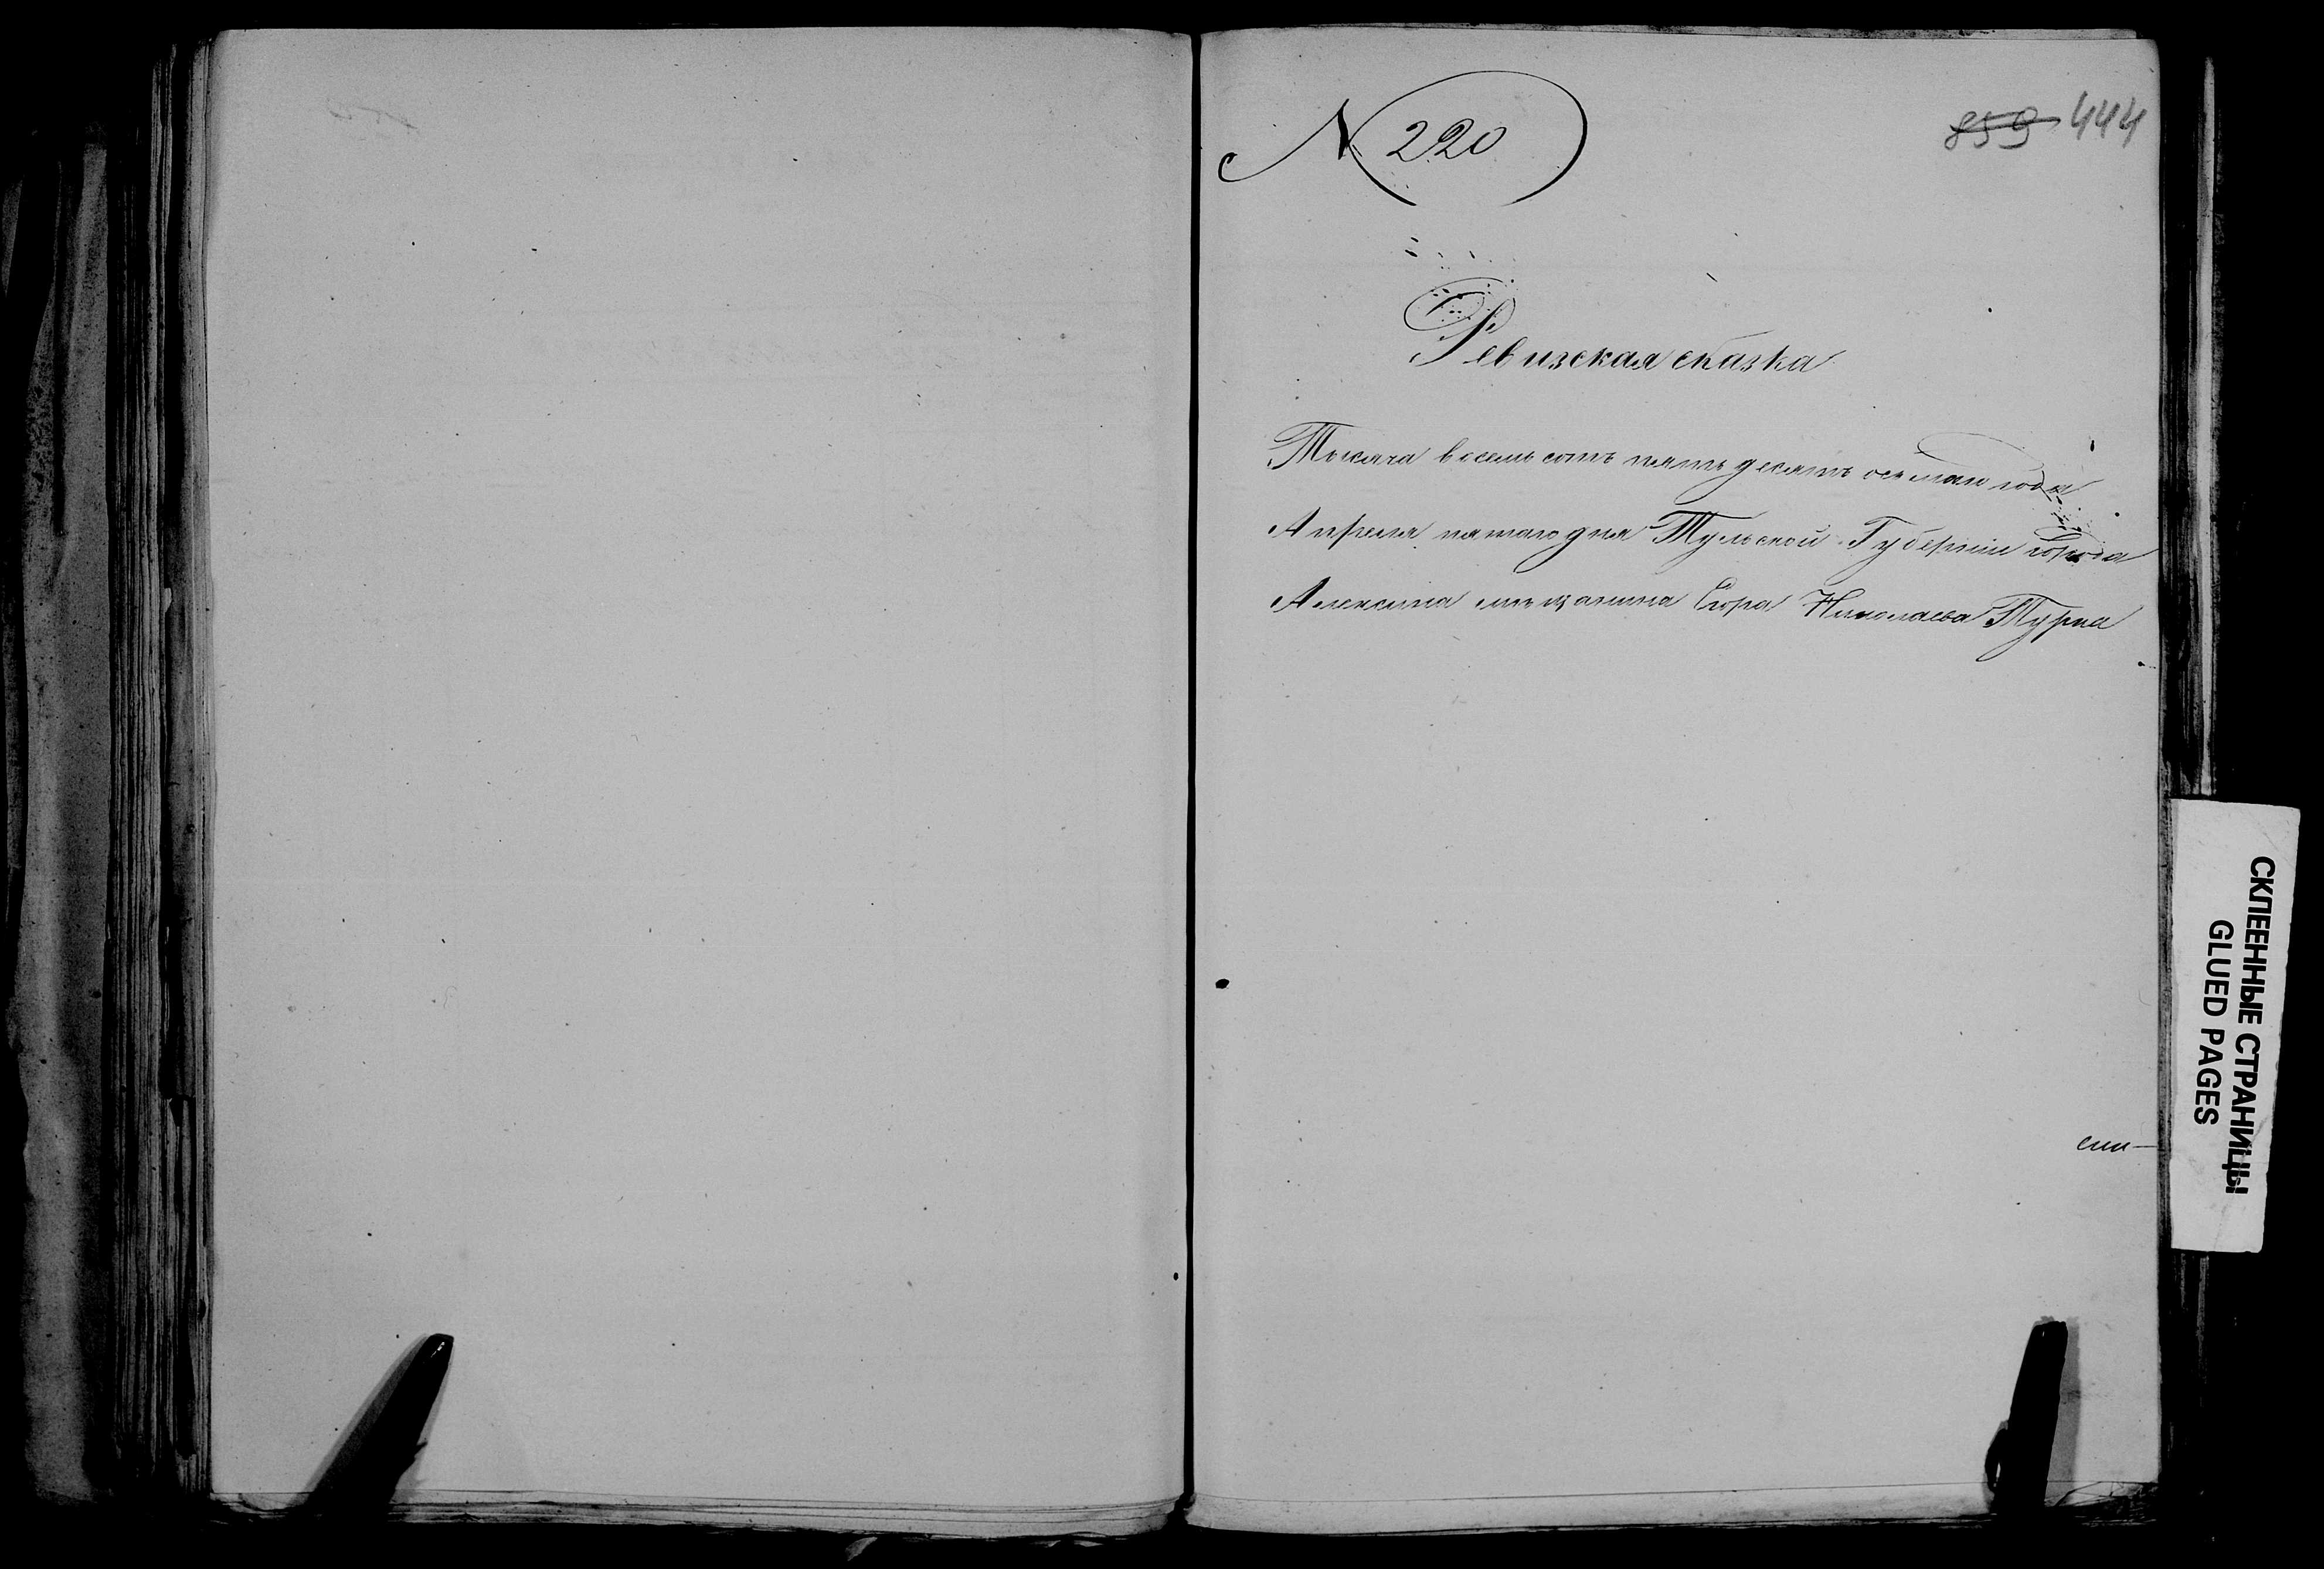 N 220
859 444
Ревизская сказка
Тысяча восемь сотъ пятьдесятъ осьмаго года
Апреля пятаго дня Тульской Губерніи города
Алексина мѣщанина Егора Николаева Турка
СКЛЕЕННЫЕ СТРАНИЦЫ
GLUED PAGES